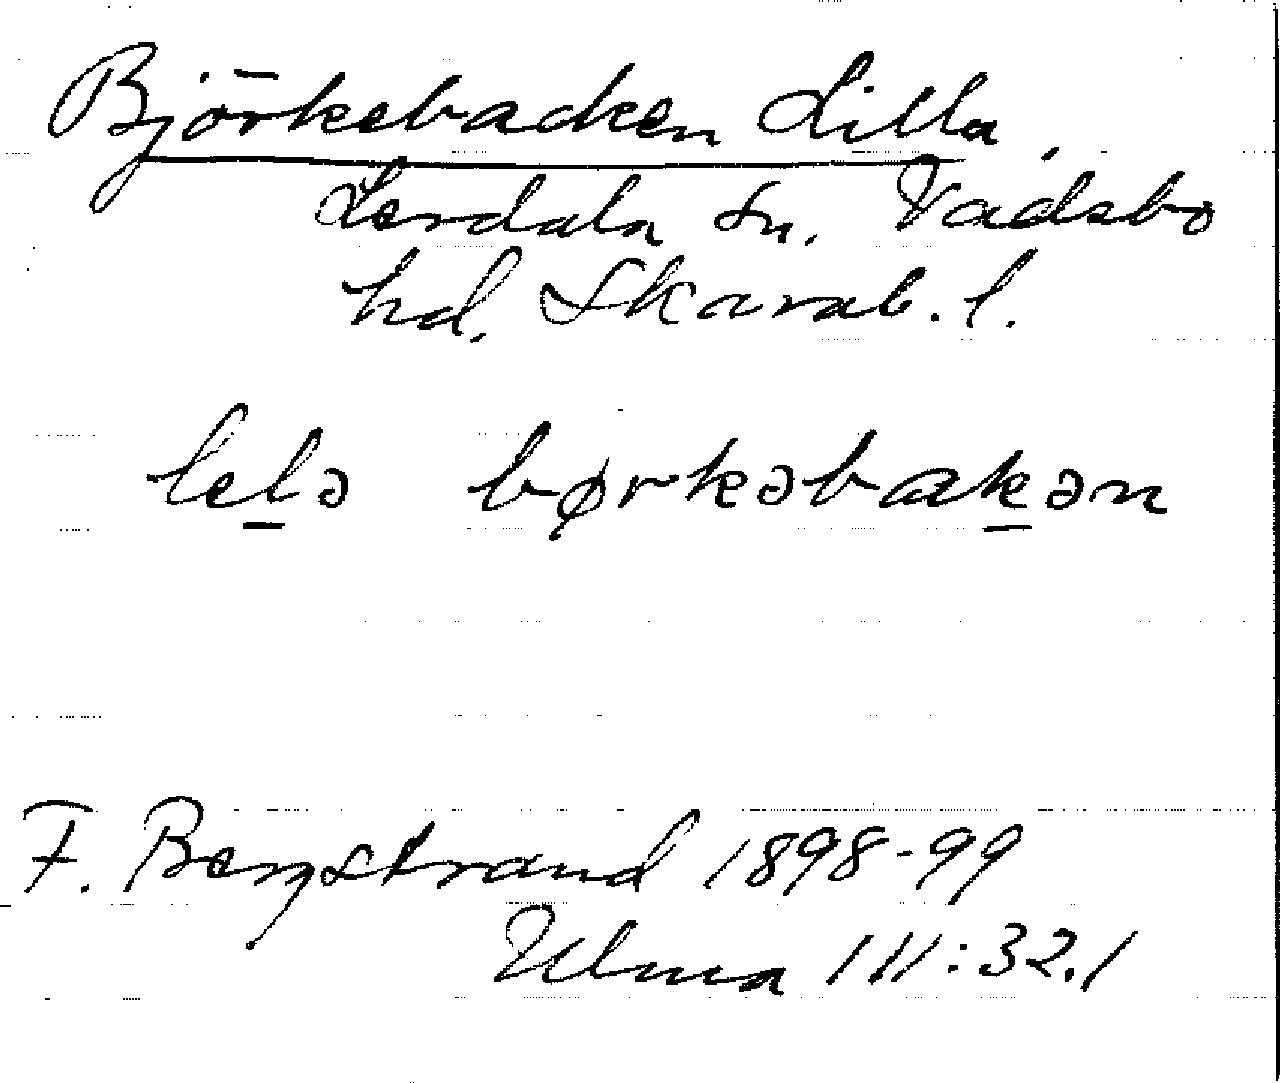 Björkebacken Lilla,
Lerdala sn. Vadsbo
hd. Skarab. l.
lelə børkəbakən
F. Bergstrand 1898-99
Ulma 111:32.1